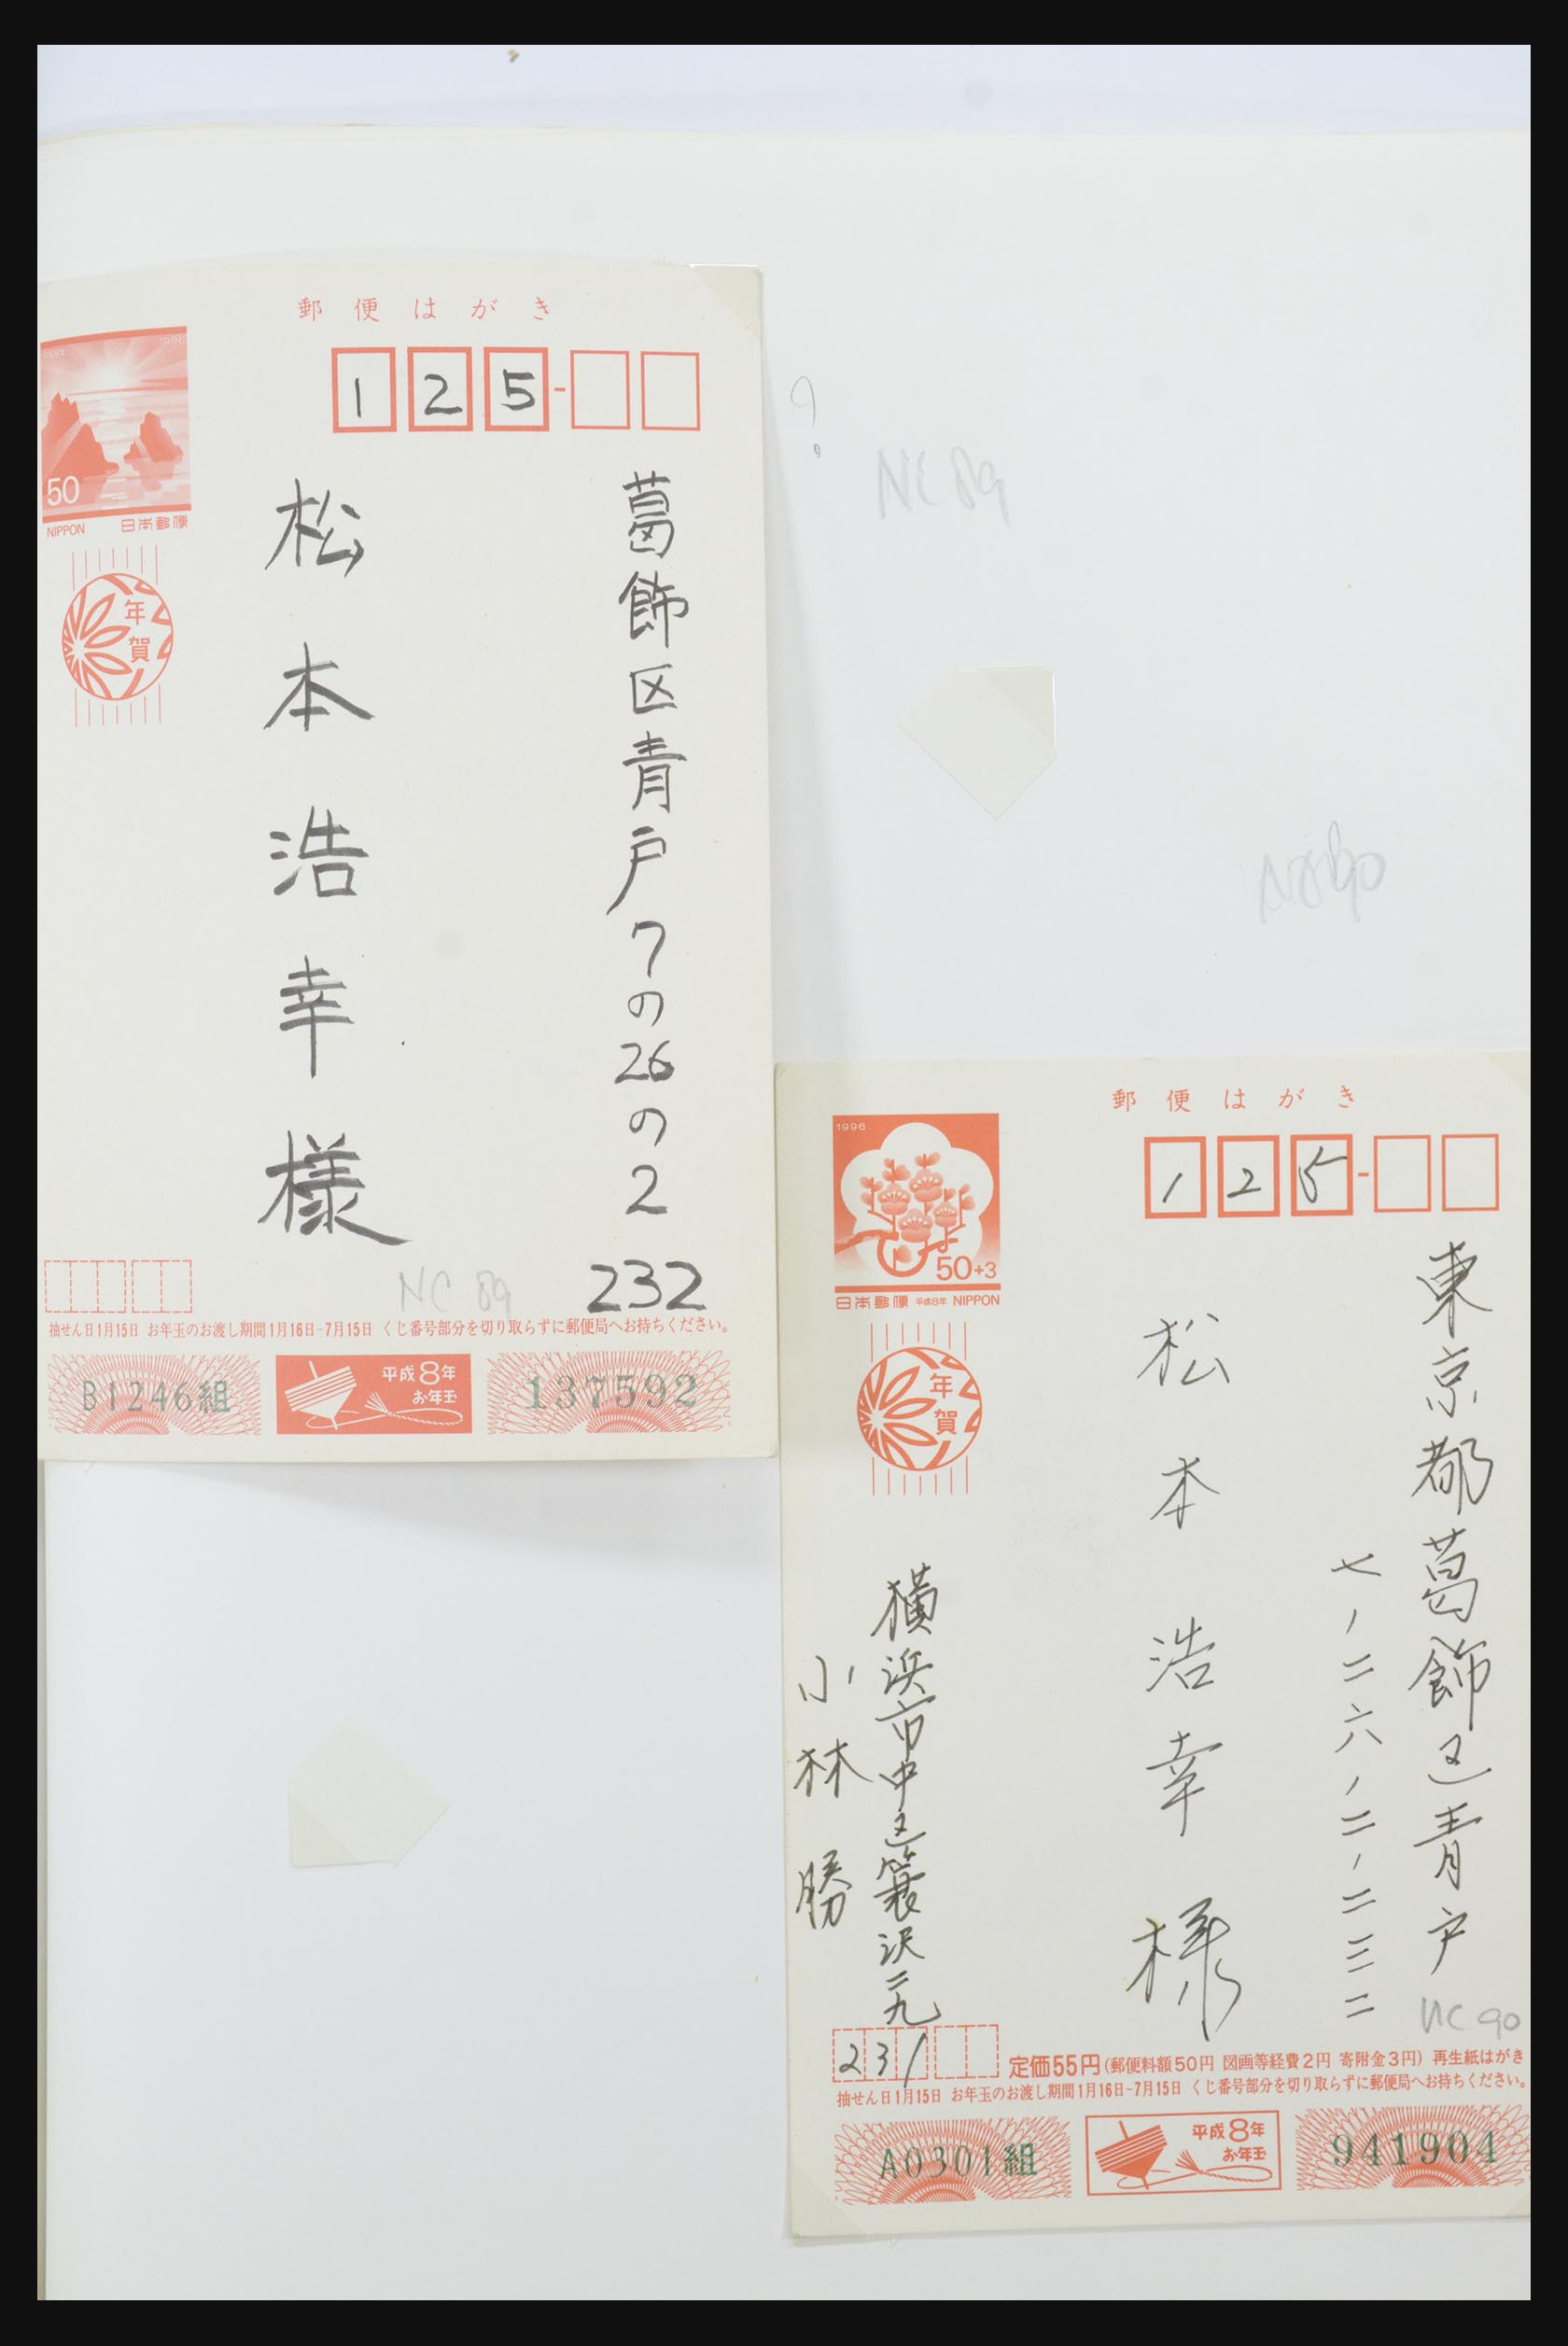 郵便はがき
1996
50
NIPPON 日本郵便
年賀
125-
葛飾区青戸7の26の2
232
松本浩幸様
NC 89
抽せん日1月15日 お年玉のお渡し期間1月16日-7月15日 くじ番号部分を切り取らずに郵便局へお持ちください。
B1246組
平成8年
お年玉
137592
?
NC 89
郵便はがき
1996
50+3
日本郵便 平成8年 NIPPON
年賀
125-
東京都葛飾区青戸
七、二六、二、二三二
松本浩幸様
横浜市中区簑沢二九
小林勝
NC 90
231
定価55円(郵便料額50円 図画等経費2円 寄附金3円) 再生紙はがき
抽せん日1月15日 お年玉のお渡し期間1月16日-7月15日 くじ番号部分を切り取らずに郵便局へお持ちください。
A0301組
平成8年
お年玉
941904